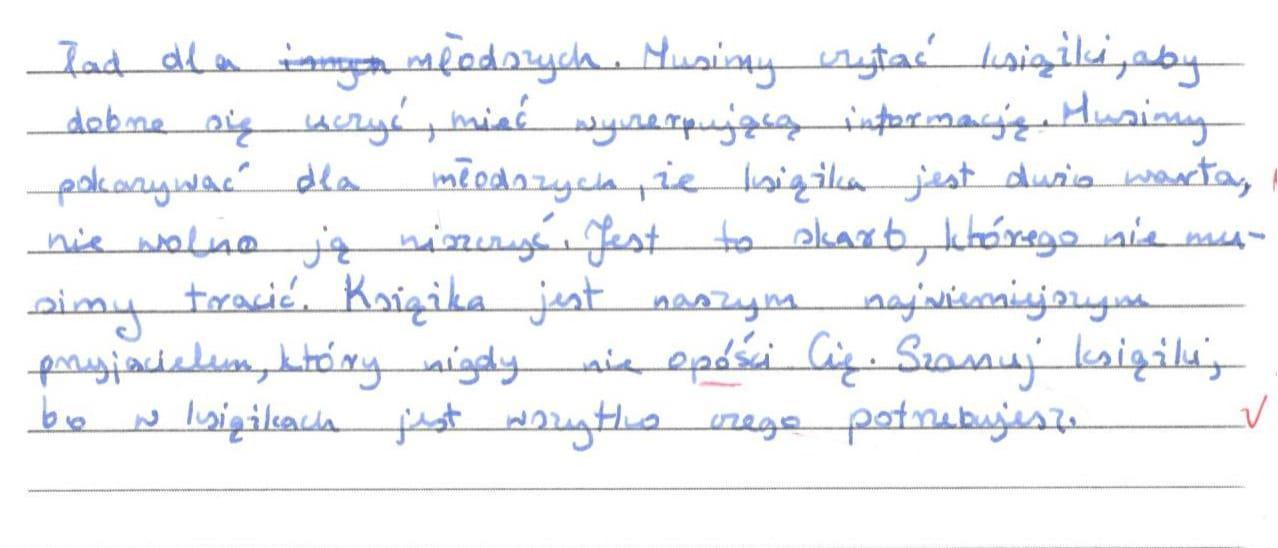 ład dla młodszych. Musimy czytać książki, aby
dobrze się uczyć, mieć wyczerpującą informację. Musimy
pokazywać dla młodszych, że książka jest dużo warta,
nie wolno ją niszczyć. Jest to skarb, którego nie mu-
simy tracić. Książka jest naszym najwierniejszym
przyjacielem, który nigdy nie opóści Cię. Szanuj książki,
bo w książkach jest wszytko czego potrzebujesz.